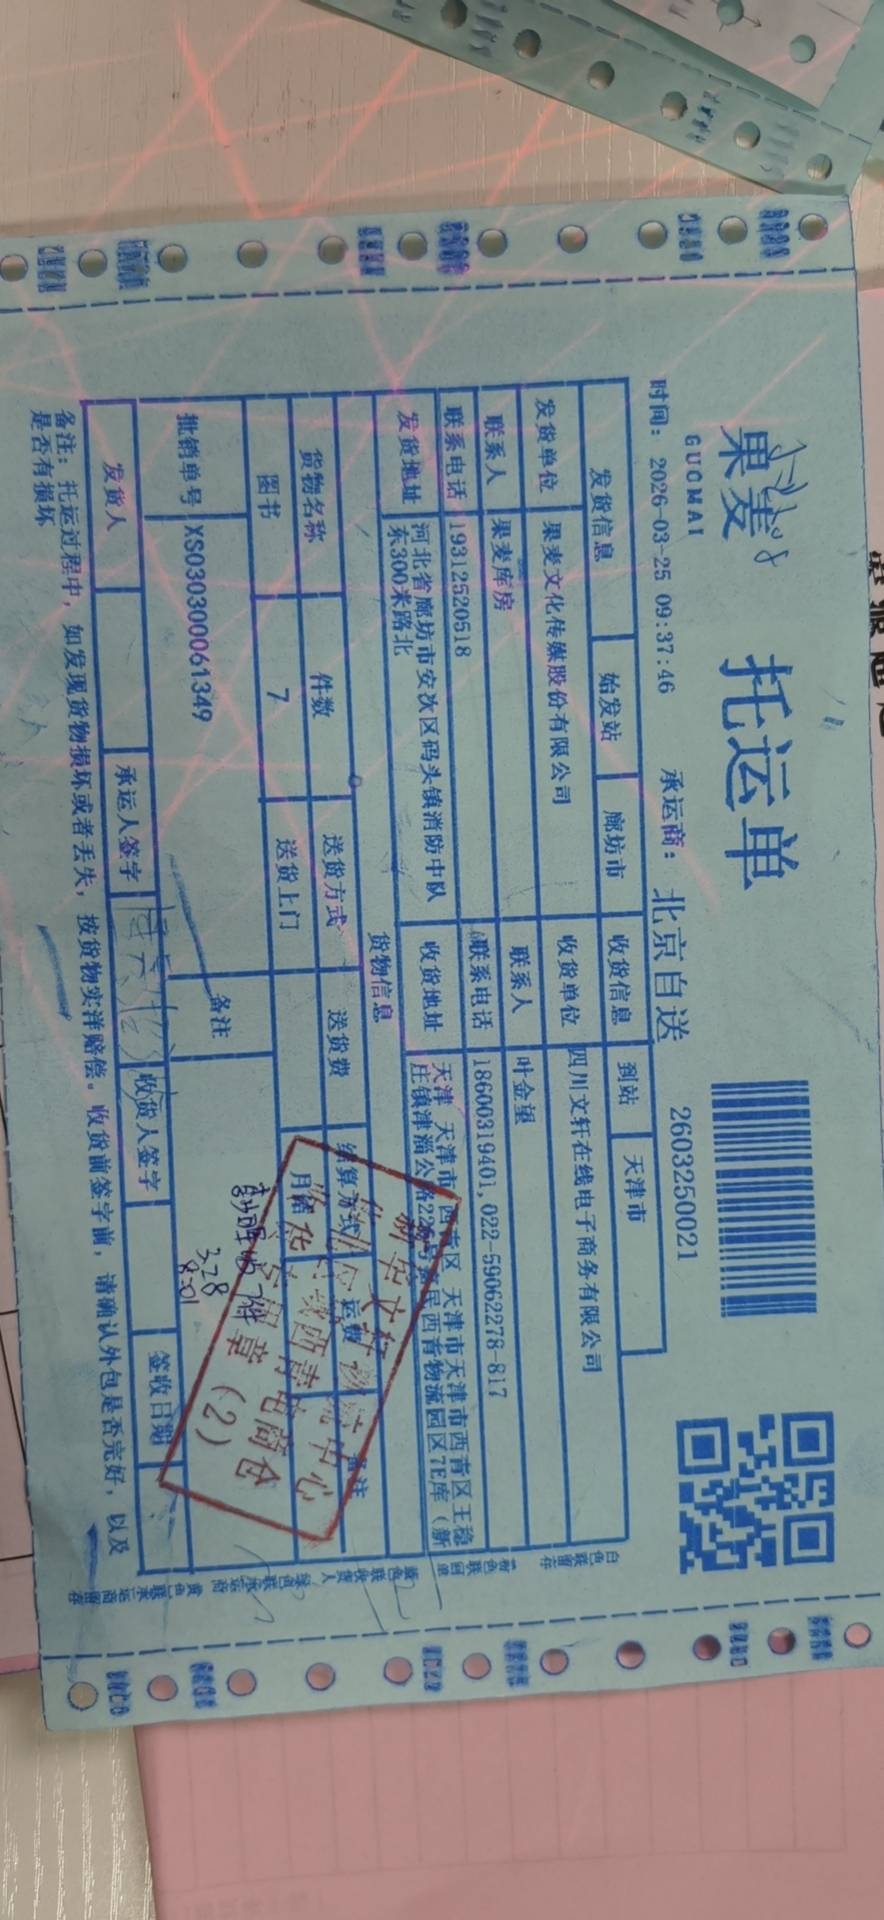 果麦
GUOMAI
托运单
时间: 2026-03-25 09:37:46
承运商: 北京自送
2603250021
发货信息 始发站 廊坊市 收货信息 到站 天津市
发货单位 果麦文化传媒股份有限公司 收货单位 四川文轩在线电子商务有限公司
联系人 果麦库房 联系人 叶金望
联系电话 19312520518 联系电话 18600319401,022-59062278-817
发货地址 河北省廊坊市安次区码头镇消防中队
东300米路北
收货地址 天津 天津市 西青区 天津市天津市西青区王稳
庄镇津淄公路22号 民西青物流园区7E库(新
货物信息
货物名称 件数 送货方式 送货费 结算方式 运费 备注
图书 7 送货上门 月结
批销单号 XS030300061349 备注
收7件
3.28
8:01
新华文轩 中心
西青电商仓
收货专用章 (2)
发货人 承运人签字 收货人签字 签收日期
备注: 托运过程中, 如发现货物损坏或者丢失, 按货物实洋赔偿。收货前签字前, 请确认外包是否完好, 以及
是否有损坏
白色联留存 粉色联回单 蓝色联收货人 绿色联承运商 黄色联承运商留存